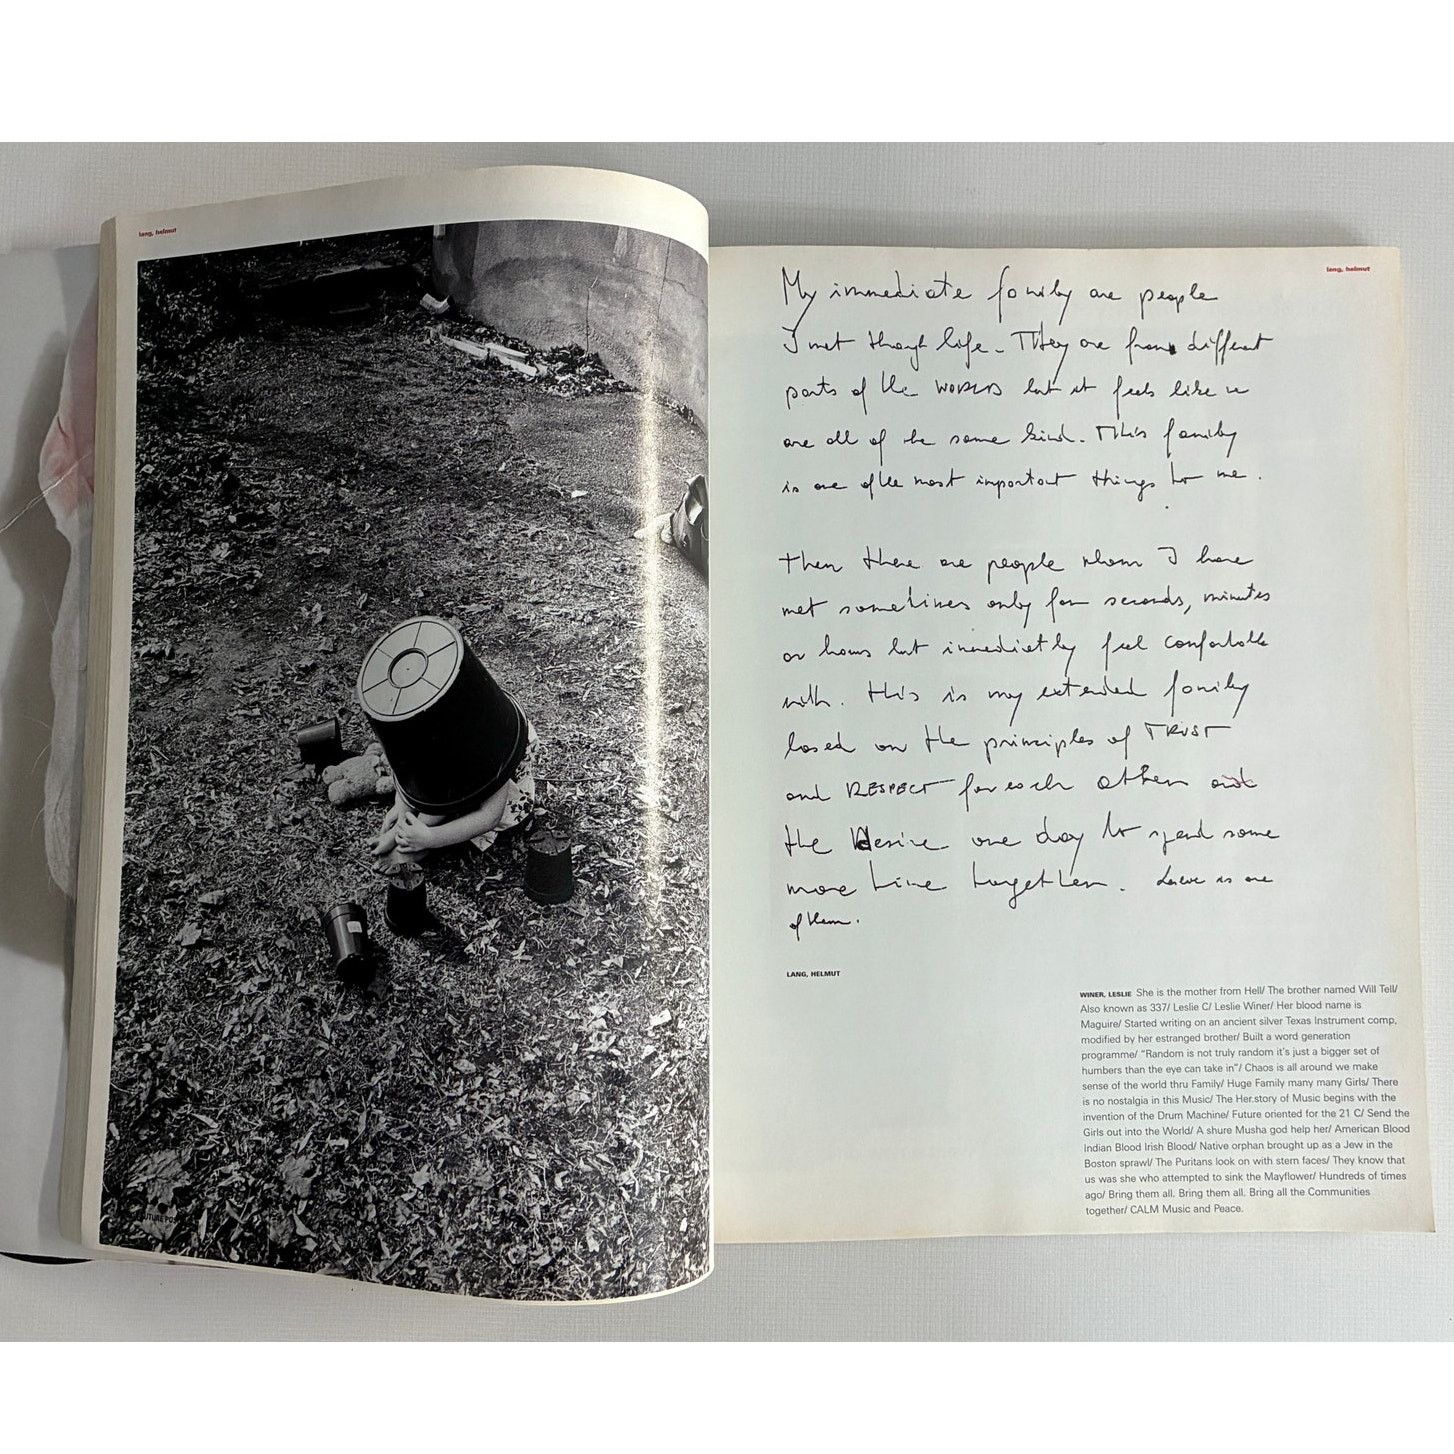 lang, helmut
lang, helmut
My immediate family are people
I met though life. They are from different
parts of the WORLD but it feels like we
are all of the same kind. This family
is one of the most important things to me.
Then there are people whom I have
met sometimes only for seconds, minutes
or hours but immediatley feel confortable
with. this is my extended family
based on the principles of TRUST
and RESPECT for each other and
the desire one day to spend some
more time together. Louise is one
of them.
LANG, HELMUT
WINER, LESLIE She is the mother from Hell/ The brother named Will Tell/
Also known as 337/ Leslie C/ Leslie Winer/ Her blood name is
Maguire/ Started writing on an ancient silver Texas Instrument comp,
modified by her estranged brother/ Built a word generation
programme/ "Random is not truly random it's just a bigger set of
humbers than the eye can take in"/ Chaos is all around we make
sense of the world thru Family/ Huge Family many many Girls/ There
is no nostalgia in this Music/ The Her.story of Music begins with the
invention of the Drum Machine/ Future oriented for the 21 C/ Send the
Girls out into the World/ A shure Musha god help her/ American Blood
Indian Blood Irish Blood/ Native orphan brought up as a Jew in the
Boston sprawl/ The Puritans look on with stern faces/ They know that
us was she who attempted to sink the Mayflower/ Hundreds of times
ago/ Bring them all. Bring them all. Bring all the Communities
together/ CALM Music and Peace.